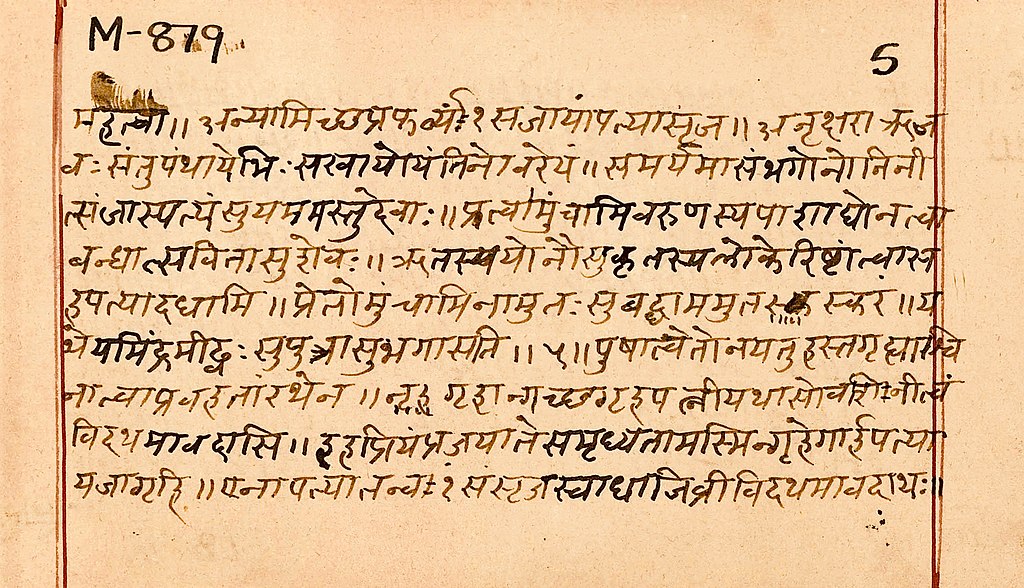 M-879
5
महत्वा॥ अन्यामिच्छप्रफर्व्यं१सजायांपत्यासृज॥ अनृक्षराऋज
वः संतुपंथायेभिः सखायोयंतिनोवरेयं॥ समर्यमासंभगोनोनिनी
त्संजास्पत्यंसुयममस्तुदेवाः॥ प्रत्वामुंचामिवरुणस्यपाशाद्येनत्वा
बन्धात्सवितासुशेवः॥ ऋतस्ययोनौसुकृतस्यलोकेरिष्टांत्वास
हपत्यादधामि॥ प्रेतोमुंचामिनामुतः सुबद्धाममुतस्करं॥ य
थेयमिंद्रमीढ्वः सुपुत्रासुभगासति॥ ५॥ पुषात्वेतोनयतुहस्तगृह्याश्वि
नात्वाप्रवहतांरथेन॥ गृहान्गच्छगृहपत्नीयथासोवशिनीत्वं
विदथमावदासि॥ इहप्रियंप्रजयातेसमृध्यतामस्मिन्गृहेगार्हपत्या
यजागृहि॥ एनापत्यातन्वं१संसृजस्वाधाजिव्रीविदथमावदाथः॥